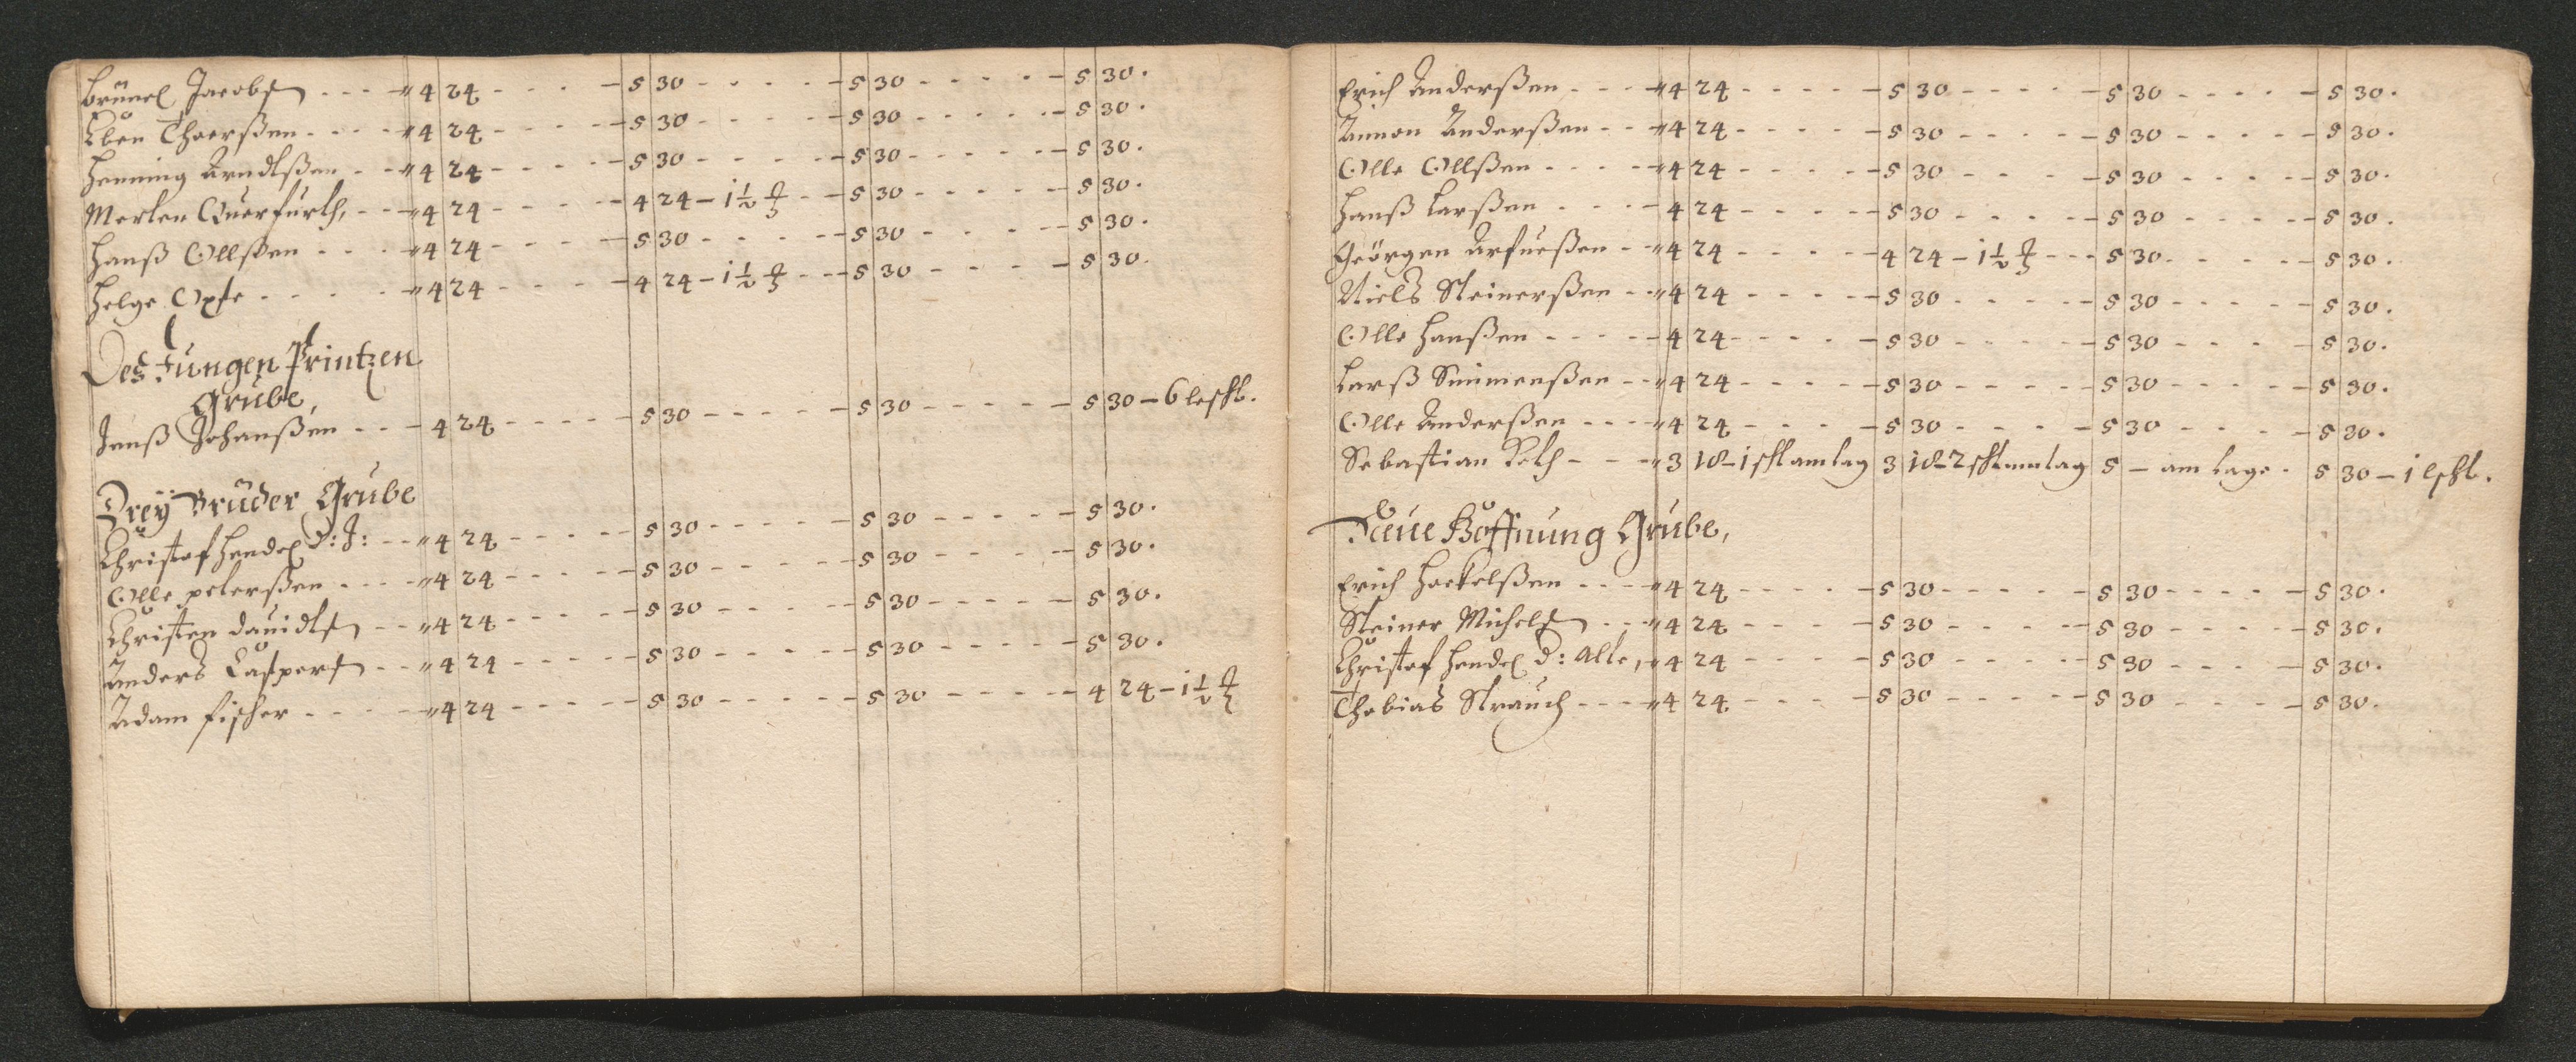 Brünel Jacobß - - - - " 4 24 - - - - - 5 30 - - - - - 5 30 - - - - - 5 30.
Eben Thoerßen - - - - " 4 24 - - - - - 5 30 - - - - - 5 30 - - - - - 5 30.
Henning Arndtßen - - " 4 24 - - - - - 5 30 - - - - - 5 30 - - - - - 5 30.
Merten Querfurth, - - " 4 24 - - - - - 4 24 - 1½ - - 5 30 - - - - - 5 30.
Hanß Ollßen - - - - " 4 24 - - - - - 5 30 - - - - - 5 30 - - - - - 5 30.
Helge Oxse - - - - " 4 24 - - - - - 4 24 - 1½ - - 5 30 - - - - - 5 30.
Des Jungen Printzen
Grube,
Jenß Johanßen - - - 4 24 - - - - - 5 30 - - - - - 5 30 - - - - - 5 30 - 6 leschl.
Dreÿ Brüder Grube
Christof Hendel d: J: - - " 4 24 - - - - - 5 30 - - - - - 5 30 - - - - - 5 30.
Olle peterßen - - - - " 4 24 - - - - - 5 30 - - - - - 5 30 - - - - - 5 30.
Christen dauidtß - - " 4 24 - - - - - 5 30 - - - - - 5 30 - - - - - 5 30.
Anders Casperß - - " 4 24 - - - - - 5 30 - - - - - 5 30 - - - - - 5 30.
Adam fischer - - - - " 4 24 - - - - - 5 30 - - - - - 5 30 - - - - - 4 24 - 1½
Erich Anderßen - - - " 4 24 - - - - - 5 30 - - - - - 5 30 - - - - - 5 30.
Ammon Anderßen - - " 4 24 - - - - - 5 30 - - - - - 5 30 - - - - - 5 30.
Olle Ollßen - - - - " 4 24 - - - - - 5 30 - - - - 5 30 - - - - - 5 30.
Hanß Larßen - - - - 4 24 - - - - - 5 30 - - - - - 5 30 - - - - - 5 30.
Geörgen Arfueßen - - " 4 24 - - - - - 4 24 - 1½ - - - 5 30 - - - - - 5 30.
Niels Steinerßen - - " 4 24 - - - - - 5 30 - - - - - 5 30 - - - - - 5 30.
Olle Hanßen - - - - - 4 24 - - - - - 5 30 - - - - - 5 30 - - - - 5 30.
Larß Simmenßen - - " 4 24 - - - - - 5 30 - - - - - 5 30 - - - - - 5 30.
Olle Anderßen - - - " 4 24 - - - - 5 30 - - - - 5 30 - - - - 5 30.
Sebastian Roth - - - " 3 18 - 1 schl am tag 3 18 - 2 schl am tag 5 - am tage - 5 30 - 1 lschl.
Neue Hoffnung Grube,
Erich Hockelßen - - - " 4 24 - - - - - 5 30 - - - - - 5 30 - - - - - 5 30.
Steiner Michelß - - - " 4 24 - - - - 5 30 - - - - - 5 30 - - - - - 5 30.
Christof Hendel d: Alte, " 4 24 - - - - 5 30 - - - - - 5 30 - - - - 5 30.
Thobias Strauch - - - - " 4 24 - - - - 5 30 - - - - - 5 30 - - - - 5 30.